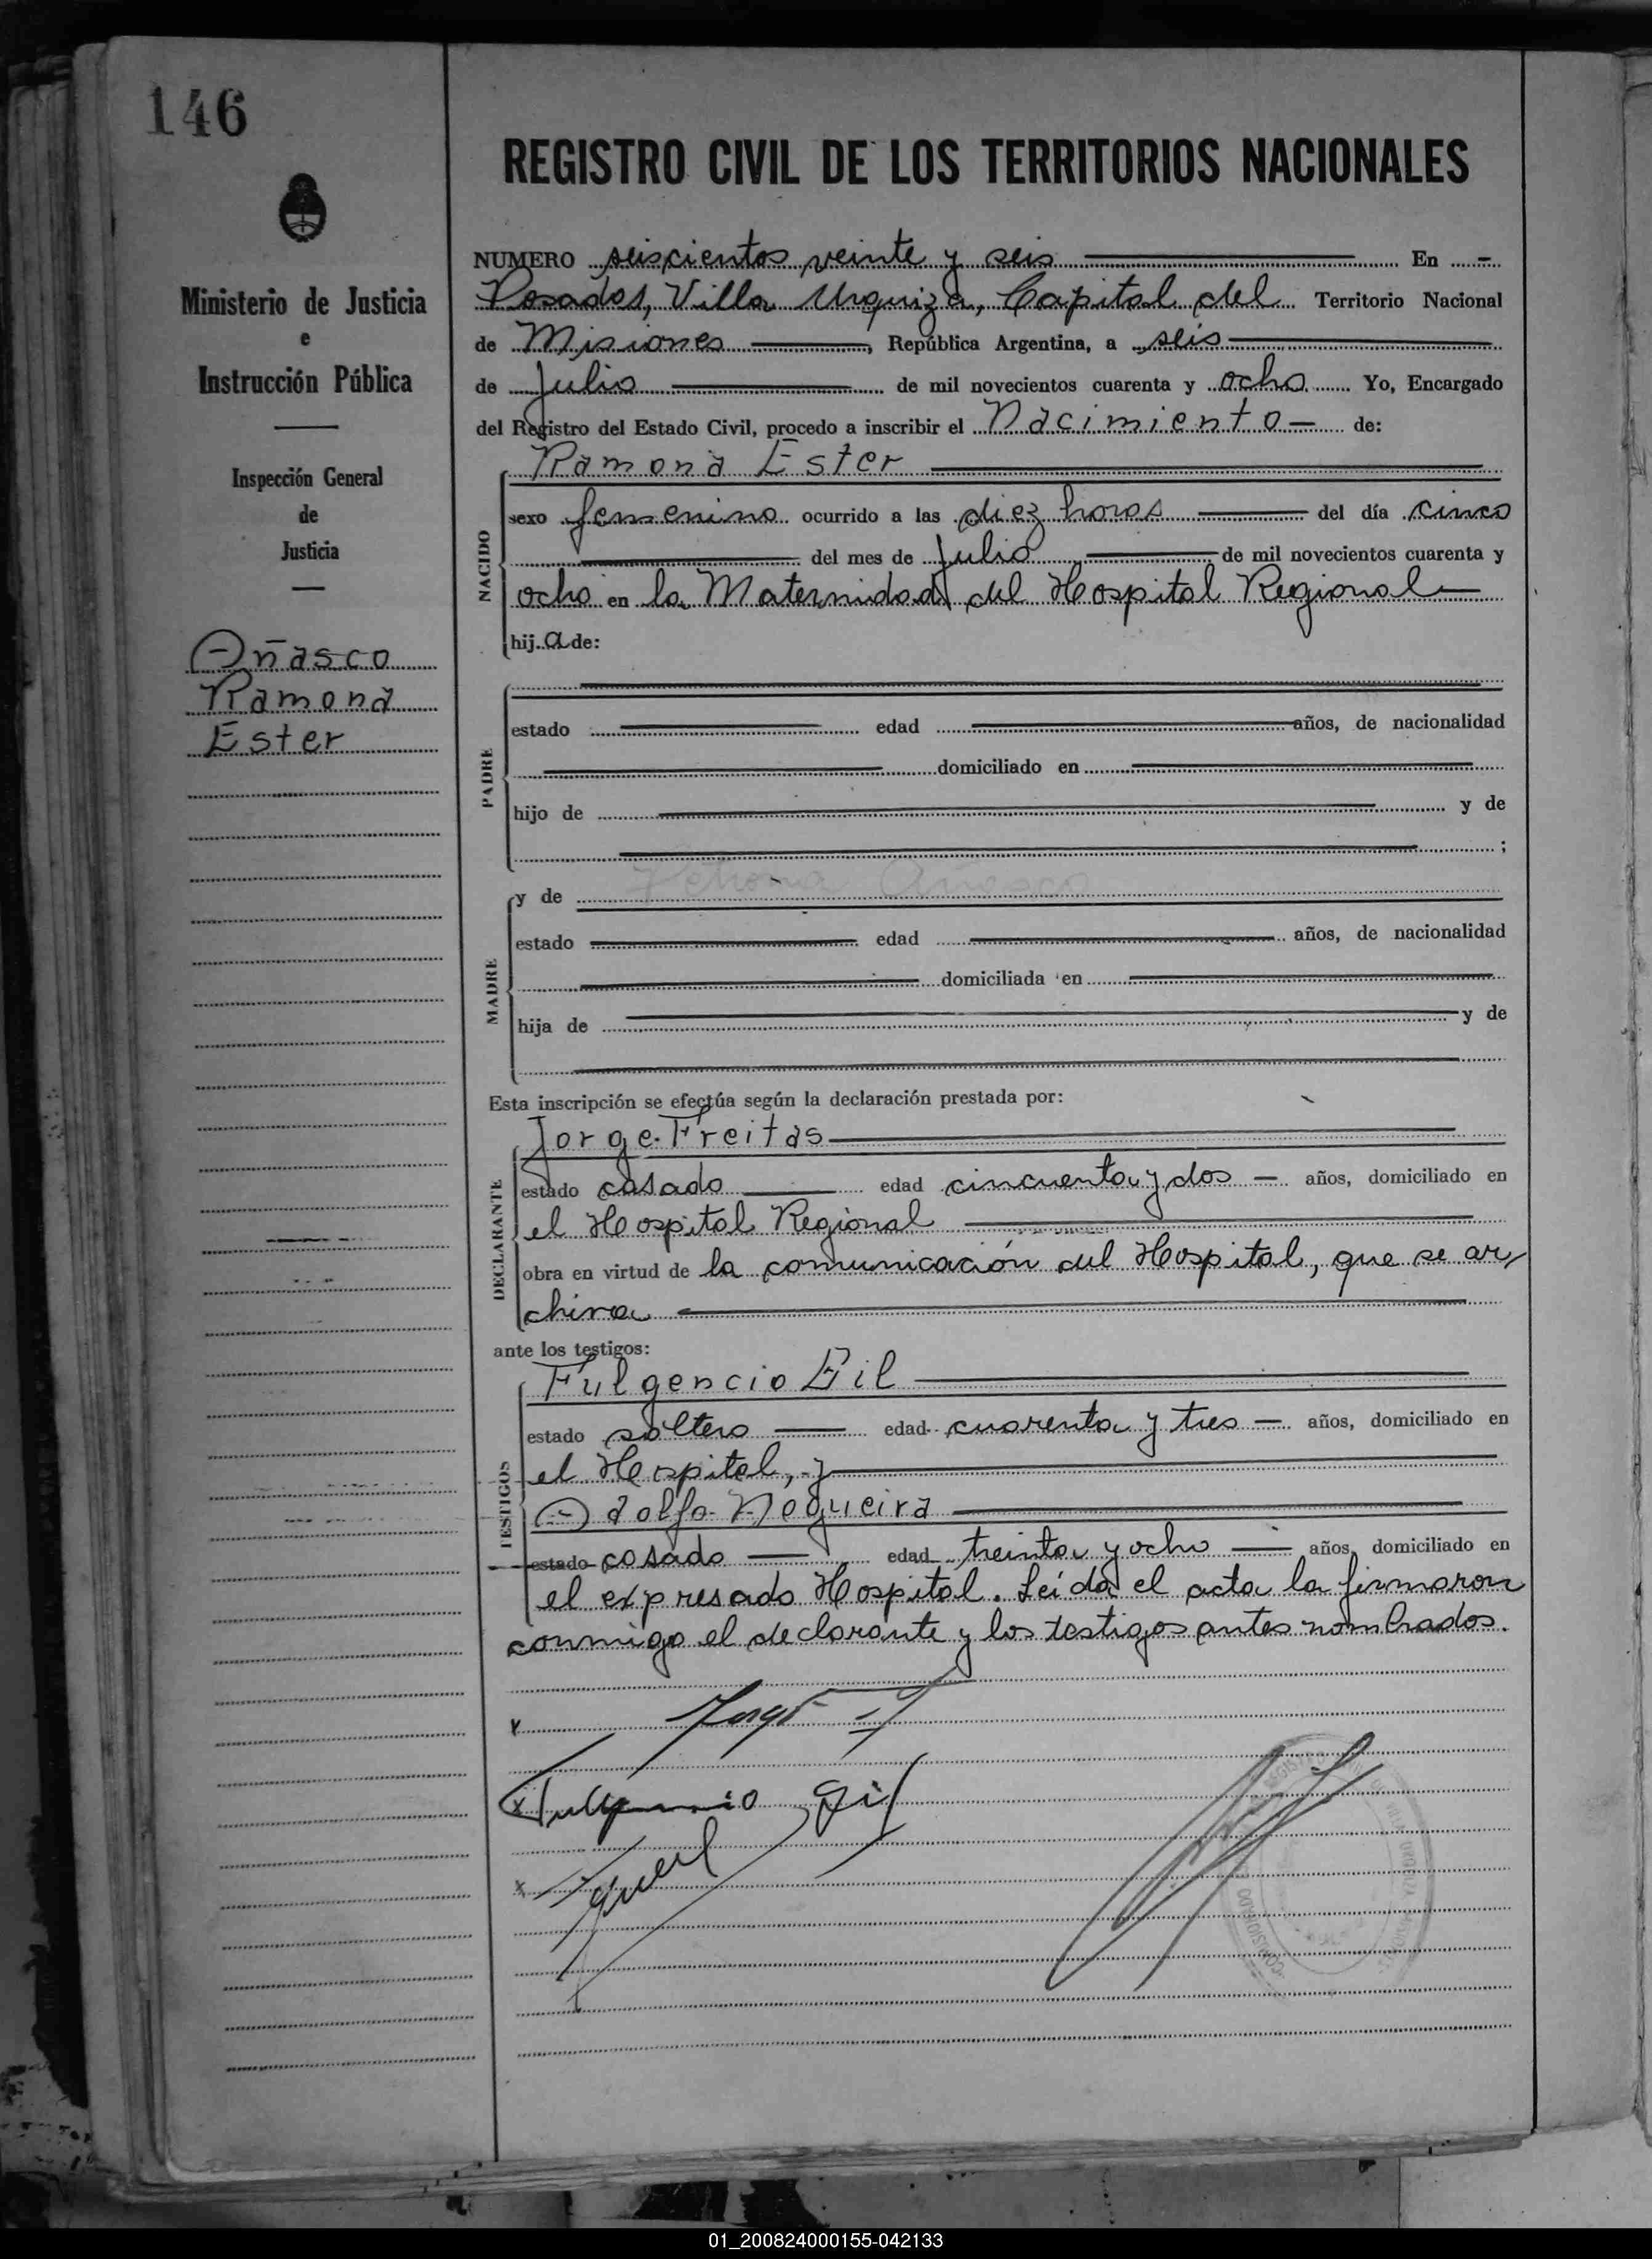 146
REGISTRO CIVIL DE LOS TERRITORIOS NACIONALES
Ministerio de Justicia
e
Instrucción Pública
Inspección General
de
Justicia
Añasco
Ramona
Ester
NUMERO seiscientos veinte y seis En
Posadas, Villa Urquiza, Capital del Territorio Nacional
de Misiones, República Argentina, a seis
de Julio de mil novecientos cuarenta y ocho Yo, Encargado
del Registro del Estado Civil, procedo a inscribir el Nacimiento — de:
NACIDO
Ramona Ester
sexo femenino ocurrido a las diez horas del día cinco
del mes de Julio de mil novecientos cuarenta y
ocho en la Maternidad del Hospital Regional
hij a de:
PADRE
estado edad años, de nacionalidad
domiciliado en
hijo de y de
;
MADRE
y de Petrona Añasco
estado edad años, de nacionalidad
domiciliada en
hija de y de
Esta inscripción se efectúa según la declaración prestada por:
DECLARANTE
Jorge Freitas
estado casado edad cincuenta y dos — años, domiciliado en
el Hospital Regional
obra en virtud de la comunicación del Hospital, que se ar
chiva
ante los testigos:
TESTIGOS
Fulgencio Gil
estado soltero edad cuarenta y tres — años, domiciliado en
el Hospital, y
Adolfo Nogueira
estado casado edad treinta y ocho años, domiciliado en
el expresado Hospital. Leída el acta la firmaron
conmigo el declarante y los testigos antes nombrados.
x
x Fulgencio Gil
x
01_200824000155-042133